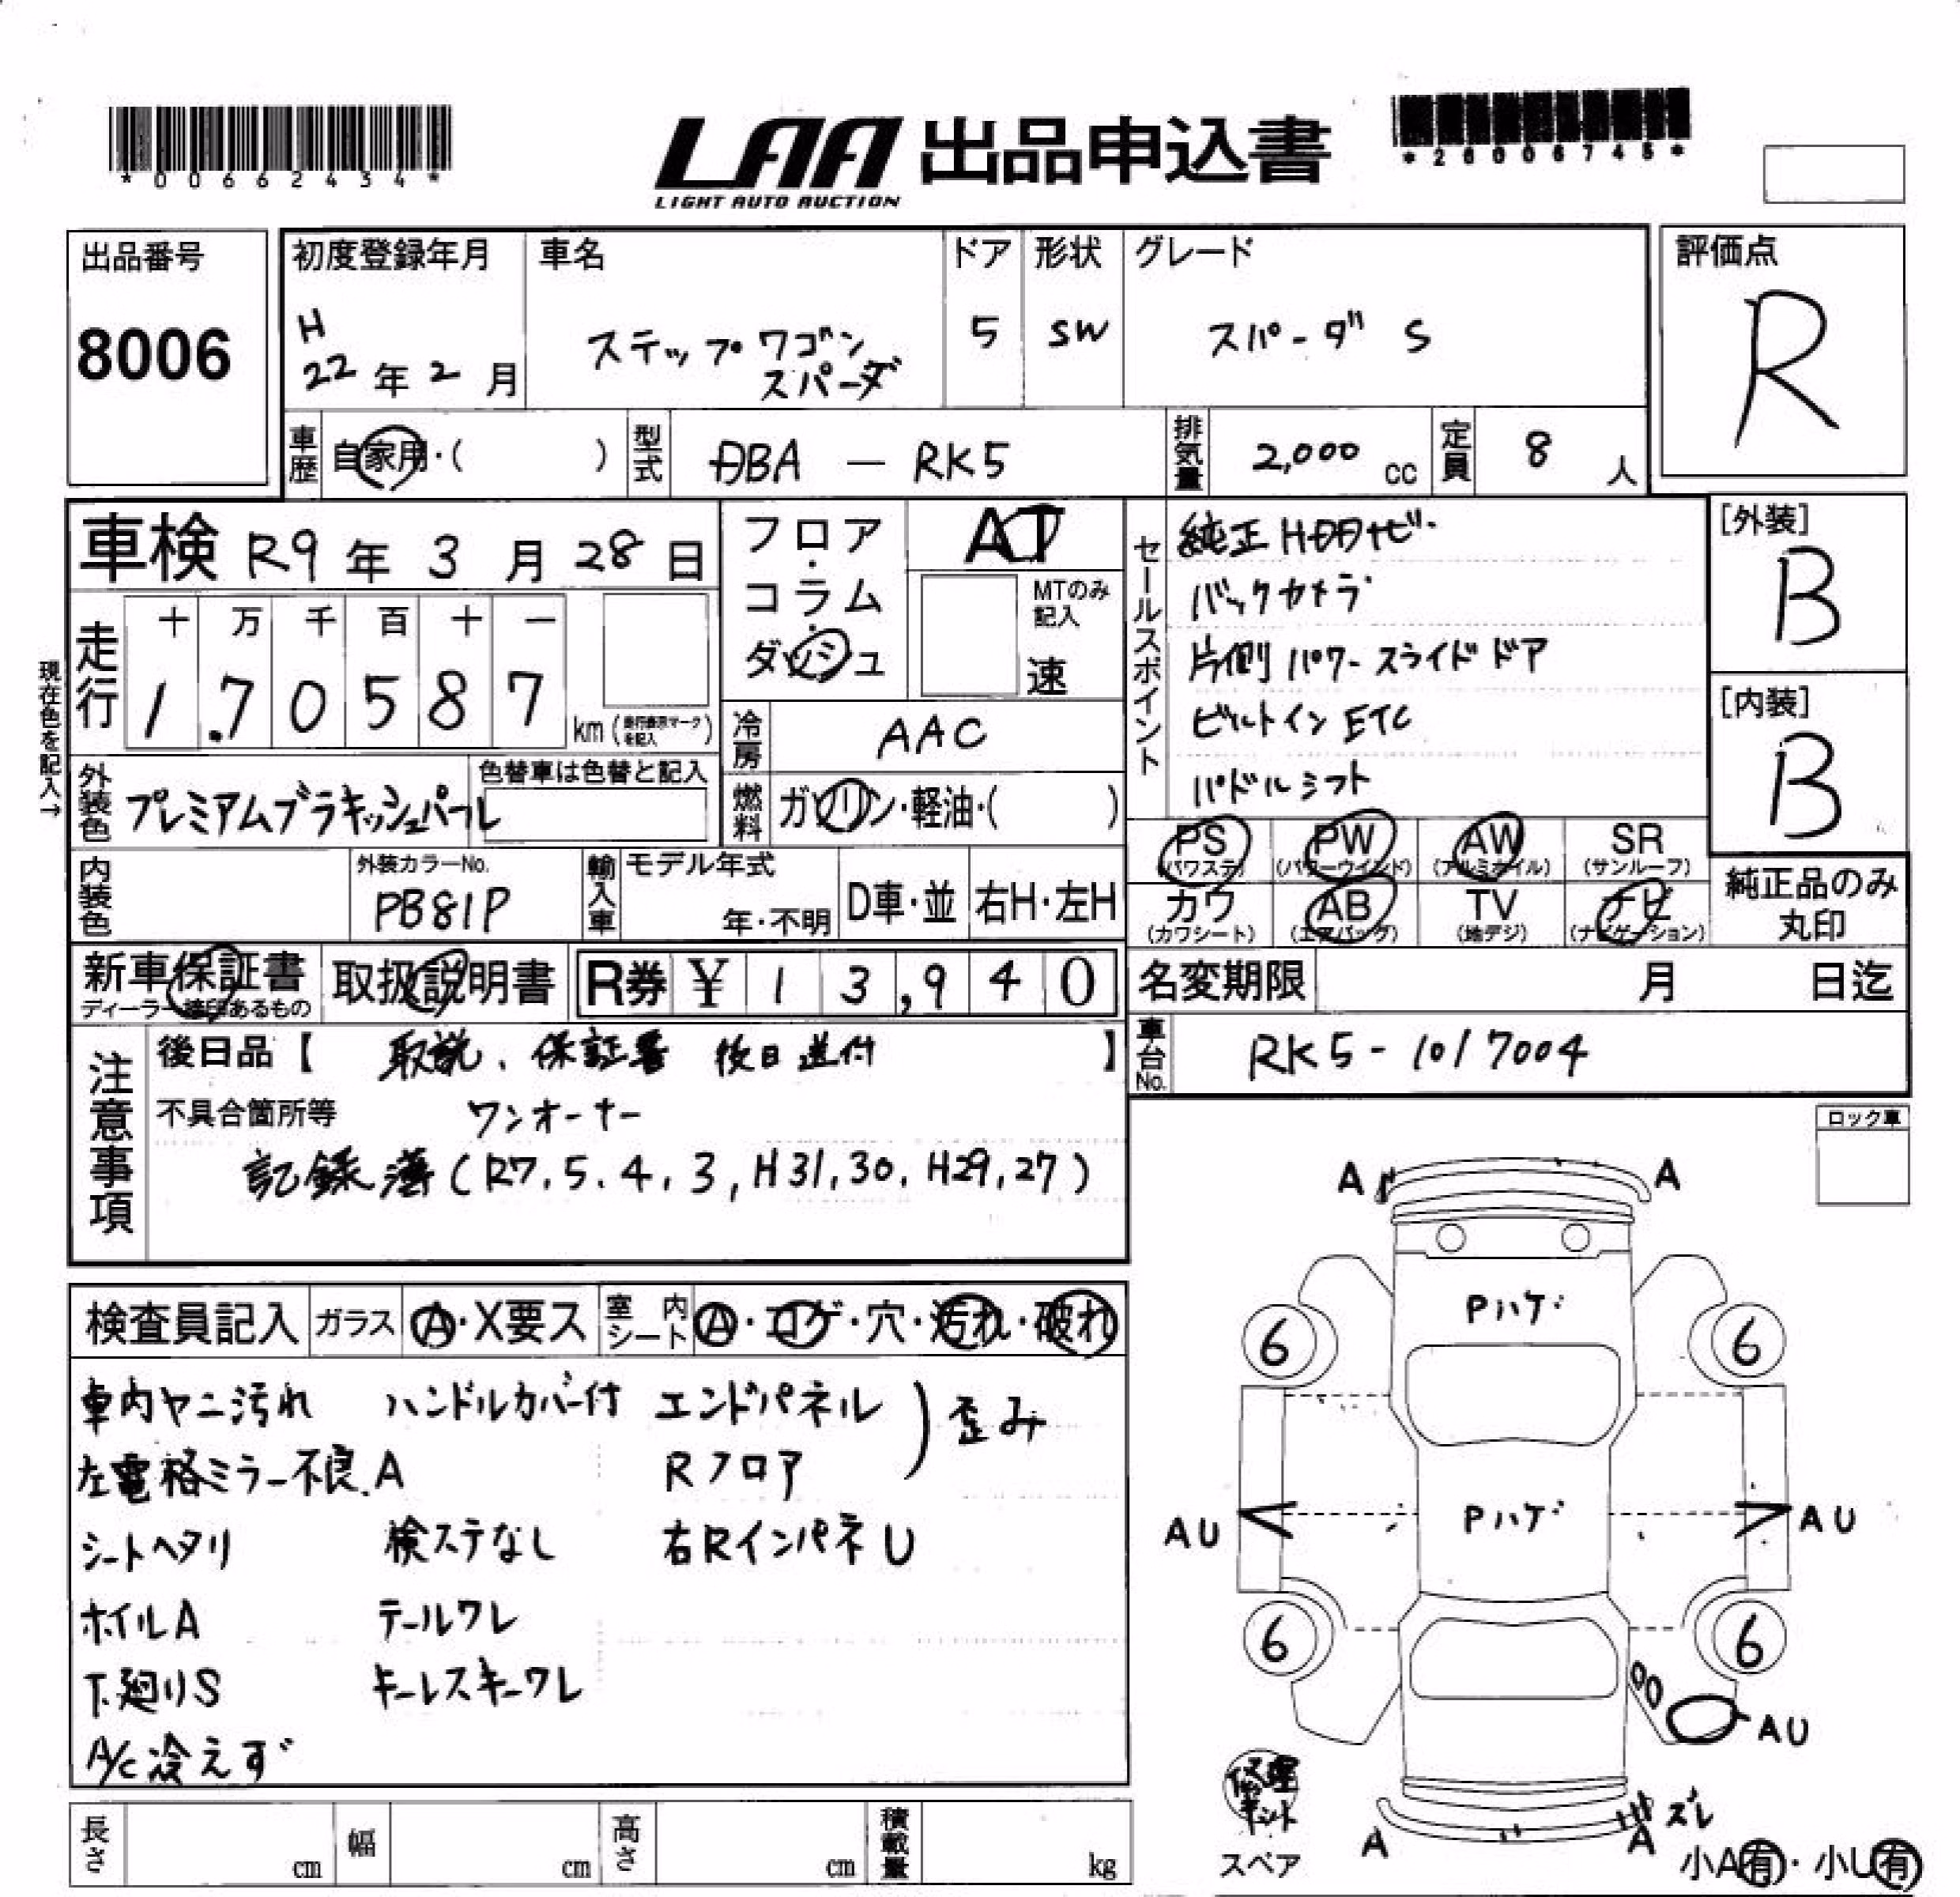 *00662434*
LAA 出品申込書
LIGHT AUTO AUCTION
*26006745*
出品番号
8006
初度登録年月
H
22年2月
車名
ステップワゴン
スパーダ
ドア
5
形状
SW
グレード
スパーダ S
評価点
R
車歴
自家用・( )
型式
DBA — RK5
排気量
2,000 cc
定員
8人
車検 R9年3月28日
現在色を記入→
走行
十 万 千 百 十 一
1.70587 km
外装色
プレミアムブラキッシュパール
色替車は色替と記入
内装色
外装カラーNo.
PB81P
輸入車
モデル年式
年・不明
D車・並
右H・左H
フロア
・
コラム
・
ダッシュ
AT
MTのみ
記入
速
冷房
AAC
燃料
ガソリン・軽油・( )
セールスポイント
純正HDDナビ
バックカメラ
片側パワースライドドア
ビルトインETC
パドルシフト
[外装]
B
[内装]
B
PS PW AW SR
(パワステ) (パワーウインド) (アルミホイル) (サンルーフ)
カワ AB TV ナビ
(カワシート) (エアバッグ) (地デジ) (ナビゲーション)
純正品のみ
丸印
新車保証書
ディーラー捺印あるもの
取扱説明書
R券 ¥ 13,940
名変期限 月 日迄
車台No.
RK5-1017004
注意事項
後日品【 取説、保証書 後日送付 】
不具合箇所等 ワンオーナー
記録簿(R7,5,4,3,H31,30,H29,27)
ロック車
検査員記入
ガラス
A・X要ス
室内
シート
A・コゲ・穴・汚れ・破れ
車内ヤニ汚れ ハンドルカバー付 エンドパネル ) 歪み
左電格ミラー不良.A Rフロア
シートヘタリ 検ステなし 右RインパネU
ホイルA テールワレ
下廻りS キーレスキーワレ
A/C冷えず
A A
Pハゲ
6 6
Pハゲ
AU AU
6 6
AU
修理
キット
スペア
A A ズレ
小A有・小U有
長さ cm
幅 cm
高さ cm
積載量 kg